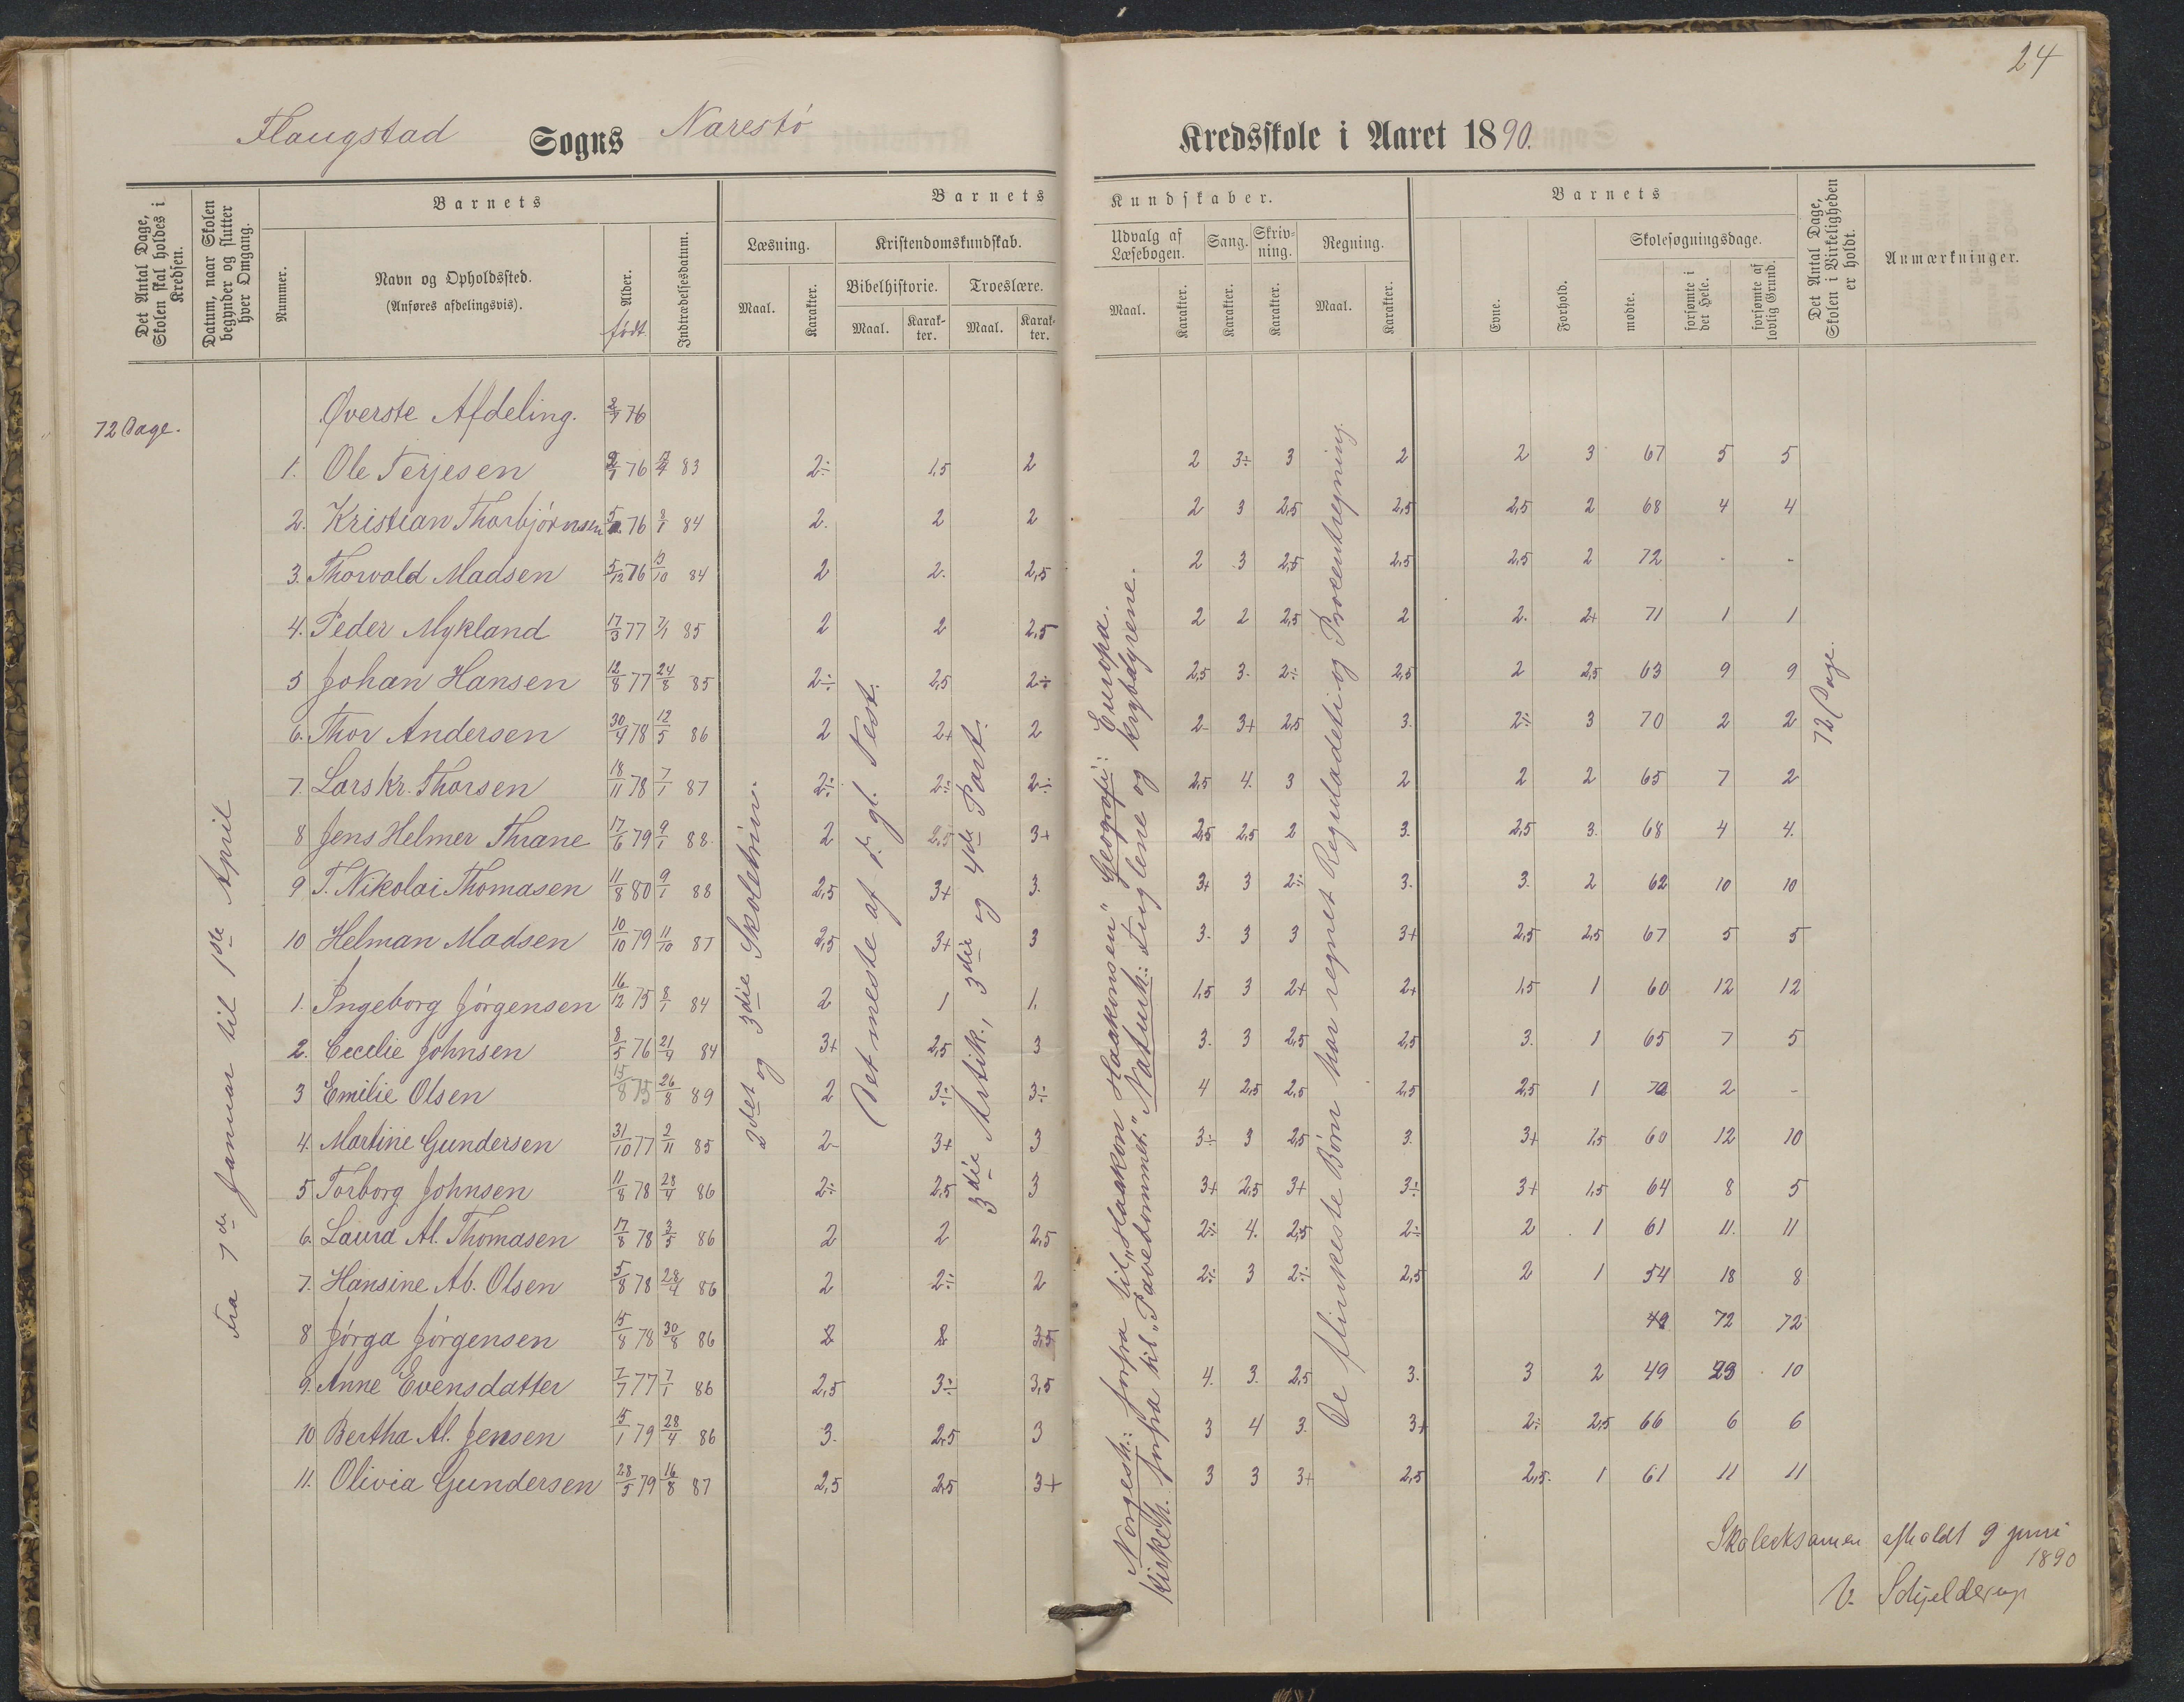 24
Flaugstad Sogns Narestö Kredsskole i Aaret 1890.
Det Antal Dage, Skolen skal holdes i Kredsen.
Datum, naar Skolen begynder og slutter hver Omgang.
Barnets
Nummer.
Navn og Opholdssted.
(Anføres afdelingsvis).
Alder.
født.
Indtrædelsesdatum.
Barnets Kundskaber.
Læsning.
Maal. Karakter.
Kristendomskundskab.
Bibelhistorie. Troeslære.
Maal. Karakter. Maal. Karakter.
Udvalg af Læsebogen.
Maal. Karakter.
Sang.
Karakter.
Skrivning.
Karakter.
Regning.
Maal. Karakter.
Barnets
Evne. Forhold.
Skolesøgningsdage.
mødte. forsømte i det Hele. forsømte af lovlig Grund.
Det Antal Dage, Skolen i Virkeligheden er holdt.
Anmærkninger.
72 Dage.
Øverste Afdeling. 2/7 76
1. Ole Terjesen 76 83 2÷ 1,5 2 2 3÷ 3 2 2 3 67 5 5
2. Kristian Thorbjörnsen 76 8/1 84 2. 2 2 2 3 2,5 2,5 2,5 2 68 4 4
3. Thorvald Madsen 5/12 76 13/10 84 2 2. 2,5 2 3 2,5 2,5 2,5 2 72 - -
4. Peder Mykland 17/3 77 7/1 85 2 2 2,5 2 2 2,5 2 2. 2+ 71 1 1
5 Johan Hansen 12/8 77 24/8 85 2÷ 2,5 2÷ 2,5 3. 2÷ 2,5 2 2,5 63 9 9
6. Thor Andersen 30/4 78 12/5 86 2 2+ 2 2- 3+ 2,5 3. 2÷ 3 70 2 2
7. Lars Kr. Thorsen 18/11 78 7/1 87 2÷ 2÷ 2÷ 2,5 4. 3 2 2 2 65 7 2
8 Jens Helmer Thrane 17/6 79 9/1 88. 2 2,5 3+ 2,5 2,5 2 3. 2,5 3. 68 4 4.
9 T. Nikolai Thomasen 11/8 80 9/1 88 2,5 3+ 3. 3+ 3 2÷ 3. 3. 2 62 10 10
10 Helman Madsen 10/10 79 11/10 87 2,5 3+ 3 3. 3 3 3+ 2,5 2,5 67 5 5
1. Ingeborg Jörgensen 16/12 75 8/1 84 2 1 1. 1,5 3 2+ 2+ 1,5 1 60 12 12
2. Cecilie Johnsen 8/5 76 21/4 84 3+ 2,5 3 3. 3 2,5 2,5 3. 1 65 7 5
3 Emilie Olsen 15/8 75 26/8 89 2 3÷ 3÷ 4 2,5 2,5 2,5 2,5 1 70 2 -
4. Martine Gundersen 31/10 77 2/11 85 2- 3+ 3 3÷ 3 2,5 3. 3+ 1,5 60 12 10
5 Torborg Johnsen 11/8 78 28/4 86 2÷ 2,5 3 3+ 2,5 3+ 3÷ 3+ 1,5 64 8 5
6. Laura Al. Thomasen 17/8 78 3/5 86 2 2 2,5 2÷ 4. 2,5 2÷ 2 1 61 11. 11
7. Hansine Ab. Olsen 5/8 78 28/4 86 2 2÷ 2 2÷ 3 2÷ 2,5 2 1 54 18 8
8 Jörga Jörgensen 15/8 78 30/8 86 2 2 3,5 49 72 72
9. Anne Evensdatter 7/7 77 7/1 86 2,5 3÷ 3,5 4. 3. 2,5 3. 3 2 49 23 10
10 Bertha Al. Jensen 15/1 79 28/4 86 3. 2,5 3 3 4 3. 3+ 2÷ 2,5 66 6 6
11. Olivia Gundersen 28/5 79 16/8 87 2,5 2,5 3+ 3 3 3+ 2,5 2,5. 1 61 11 11
Fra 7de Januar til 1ste April
2det og 3die Skoletrin.
Det meste af d. gl. Test.
3die Artik., 3die og 4de Part.
Norgesh.: forfra til "Haakon Haakonsen" Geografi: Europa.
Kirkeh. forfra til "Pavedömmet." Naturh.: Fuglene og Krybdyrene.
De flinkeste Børn har regnet Reguladetri og Procentregning.
72 Dage.
Skoleeksamen afholdt 9 juni
1890
V. Schjelderup